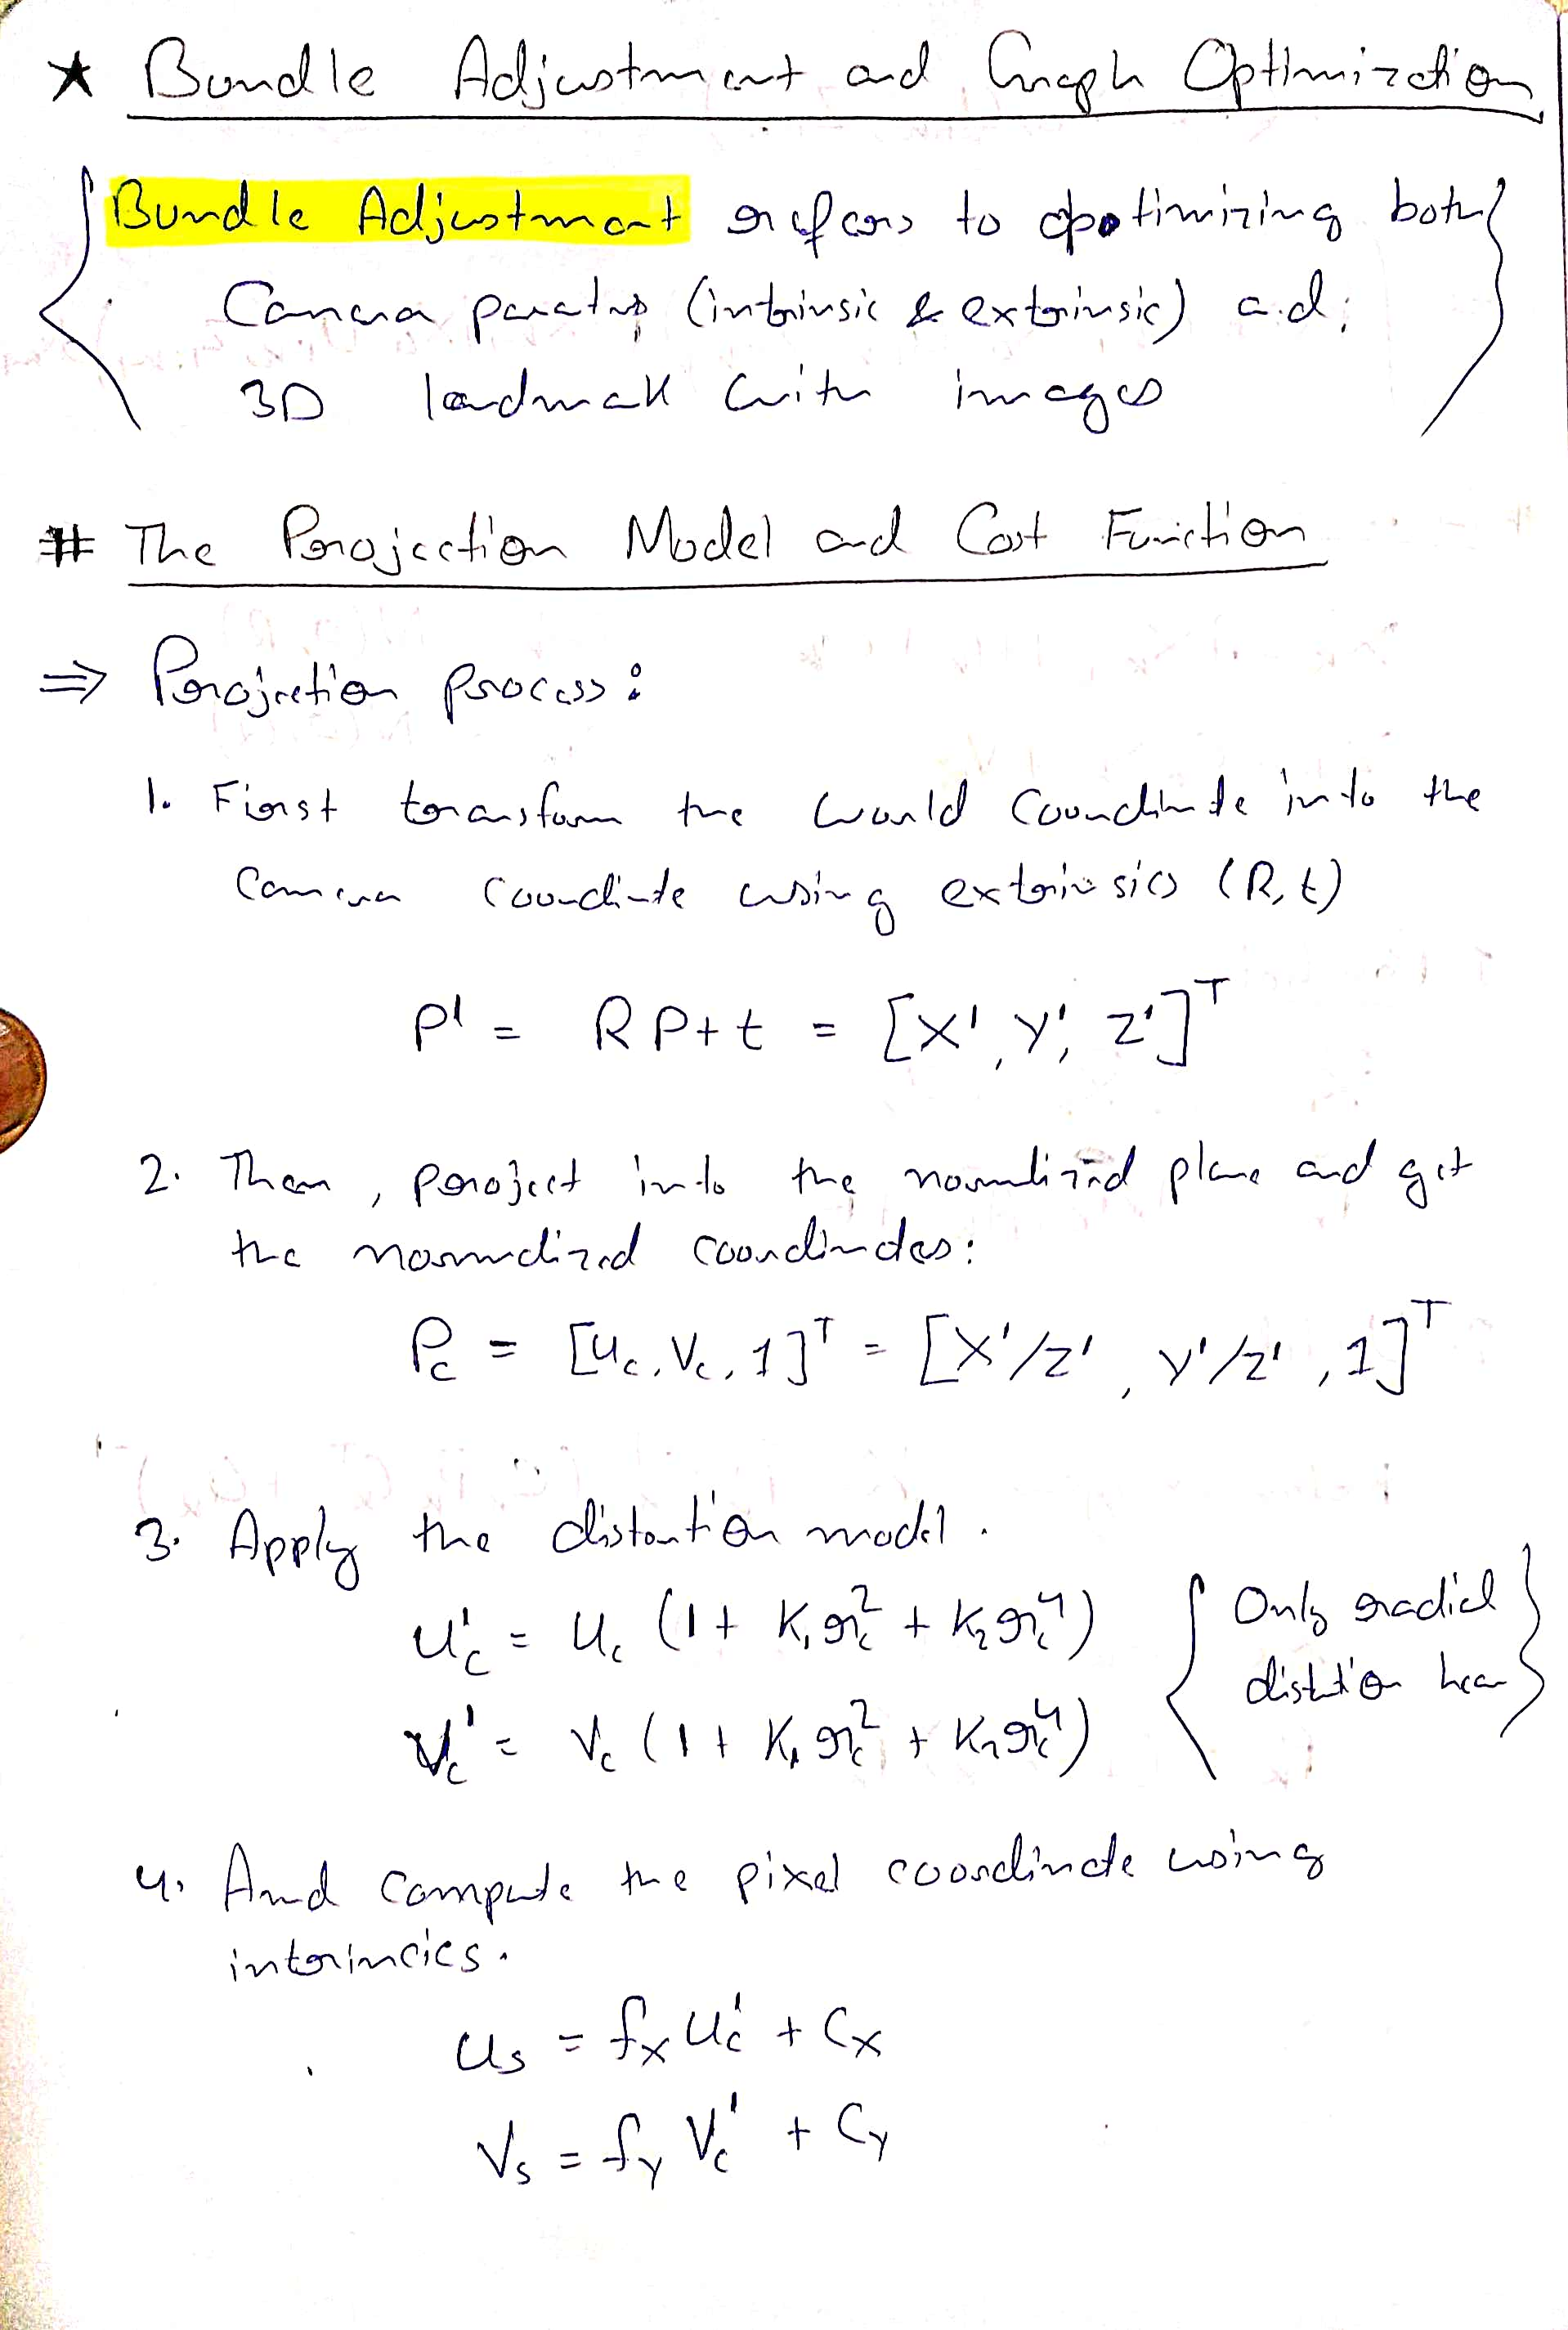 ★ Bundle Adjustment and Graph Optimization
Bundle Adjustment refers to opotimizing both
Camera paramaters (intrinsic & extrinsic) and
3D landmark with images
# The Projection Model and Cost Function
⇒ Projection process:
1. First transform the world coordinate into the
camera coordinate using extrinsics (R, t)
P' = RP + t = [X', Y', Z']ᵀ
2. Then, project into the normalized plane and get
the normalized coordinates:
P_c = [u_c, v_c, 1]ᵀ = [X'/Z', Y'/Z', 1]ᵀ
3. Apply the distortion model.
u_c' = u_c (1 + k₁r_c² + k₂r_c⁴) { Only radial
v_c' = v_c (1 + k₁r_c² + k₂r_c⁴) distortion hear }
4. And compute the pixel coordinate using
intrincics.
u_s = f_x u_c' + c_x
v_s = f_y v_c' + c_y